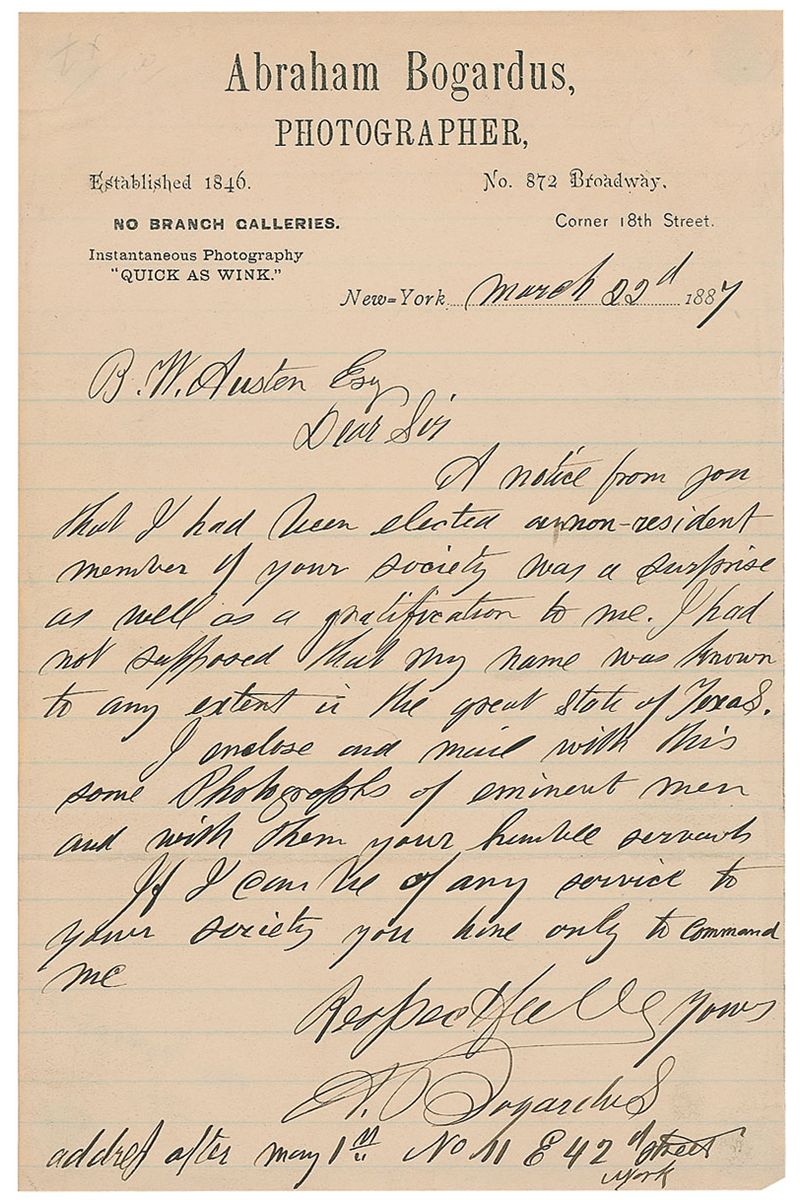 Abraham Bogardus,
PHOTOGRAPHER,
Established 1846.
No. 872 Broadway,
NO BRANCH GALLERIES.
Corner 18th Street.
Instantaneous Photography
"QUICK AS WINK."
New=York, March 22d 1887
B. W. Austen Esq
Dear Sir
A notice from you
that I had been elected a non-resident
member of your society was a surprise
as well as a gratification to me. I had
not supposed that my name was known
to any extent in the great State of Texas.
I enclose and mail with this
some Photographs of eminent men
and with them your humble servants
If I can be of any service to
your society you have only to command
me
Respectfully Yours
A. Bogardus
address after may 1st No 11 E 42d street
York